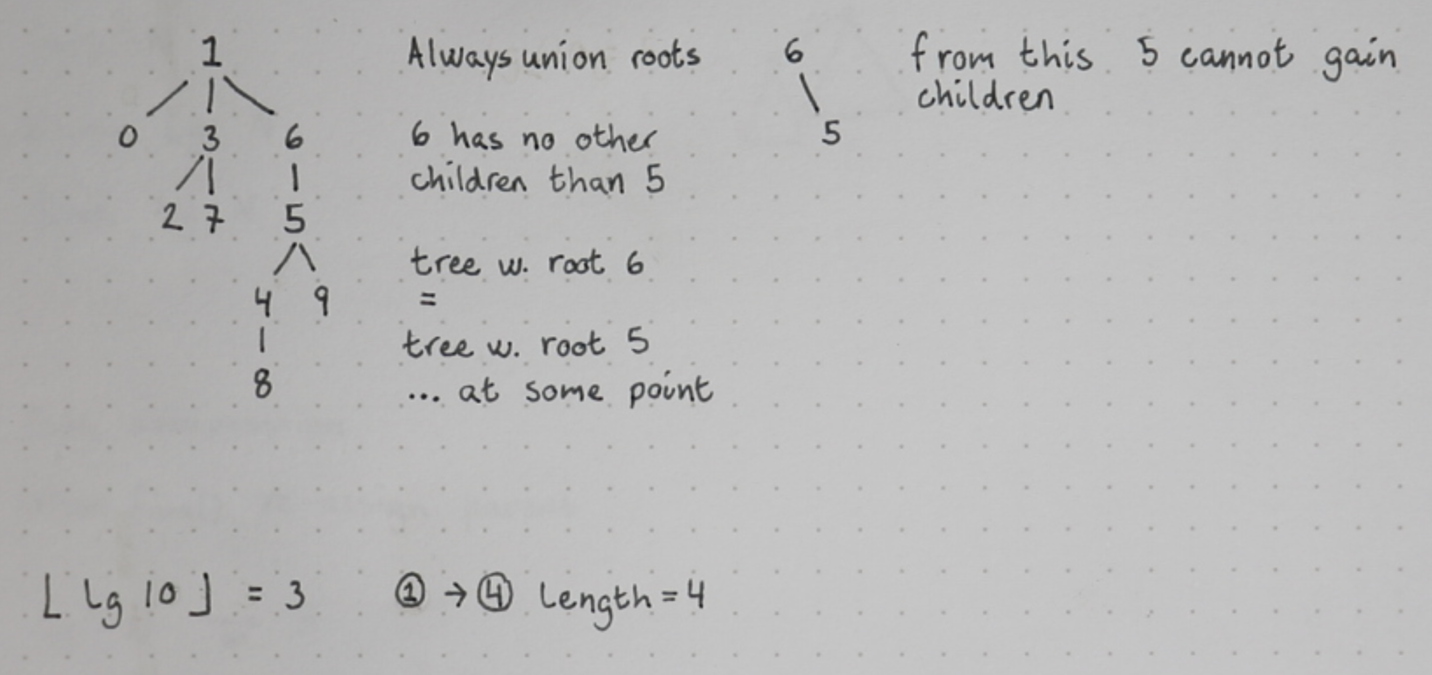 1
0 3 6
2 7 5
4 9
8
Always union roots
6 has no other
children than 5
tree w. root 6
=
tree w. root 5
... at some point
6
5
from this 5 cannot gain
children
⌊ lg 10 ⌋ = 3
① → ④ Length = 4